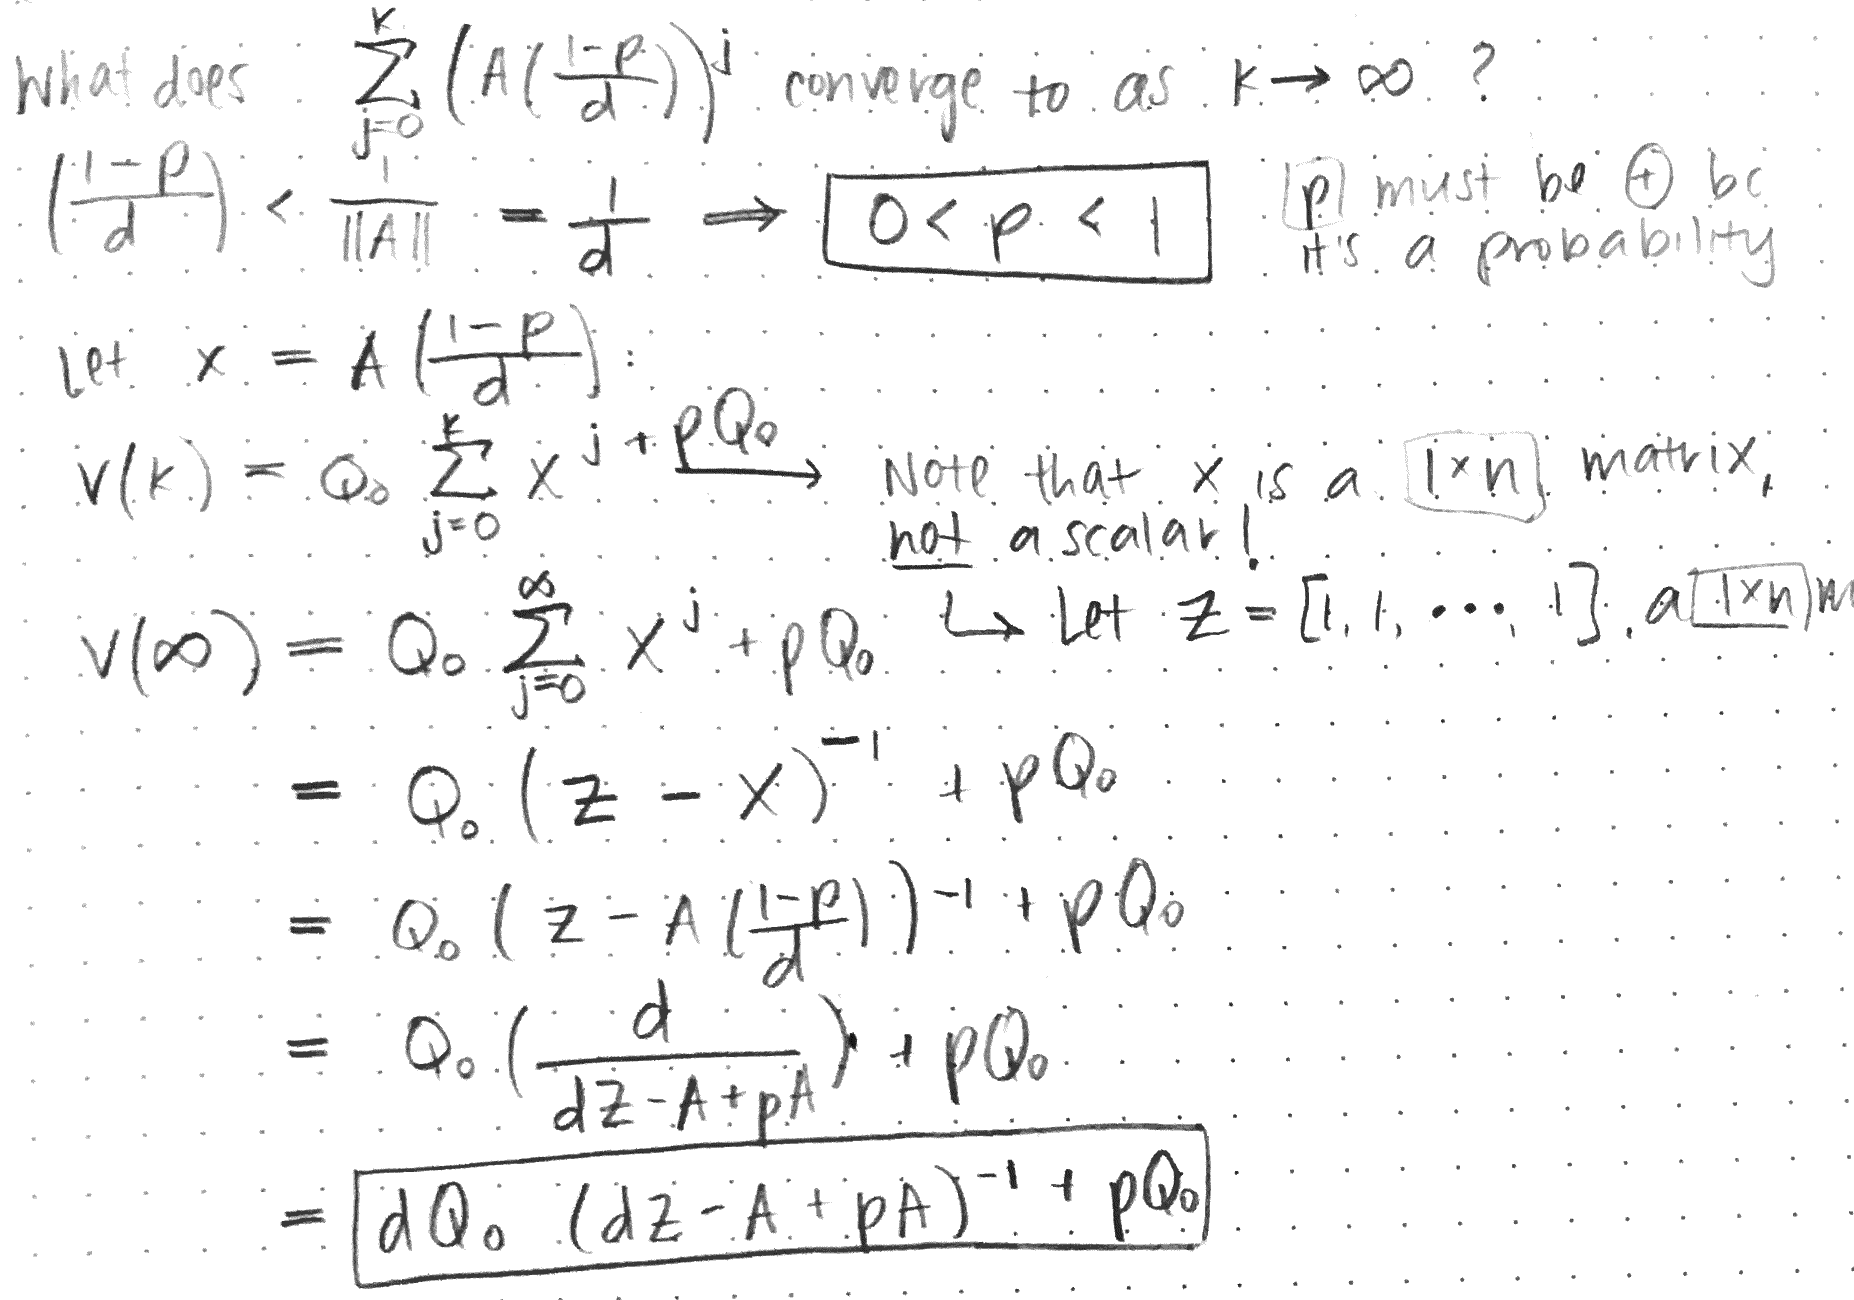 What does \sum_{j=0}^{k} (A(\frac{1-p}{d}))^j converge to as k → ∞ ?
(\frac{1-p}{d}) < \frac{1}{||A||} = \frac{1}{d} ⟹ 0 < p < 1 p must be ⊕ bc
it's a probability
Let x = A(\frac{1-p}{d}):
v(k) = Q_0 \sum_{j=0}^{k} x^j + pQ_0 → Note that x is a 1×n matrix,
not a scalar!
v(∞) = Q_0 \sum_{j=0}^{∞} x^j + pQ_0 ↳ Let z = [1, 1, ..., 1], a 1×n m
= Q_0 (z - x)^{-1} + pQ_0
= Q_0 (z - A(\frac{1-p}{d}))^{-1} + pQ_0
= Q_0 (\frac{d}{dz - A + pA}) + pQ_0
= dQ_0 (dz - A + pA)^{-1} + pQ_0